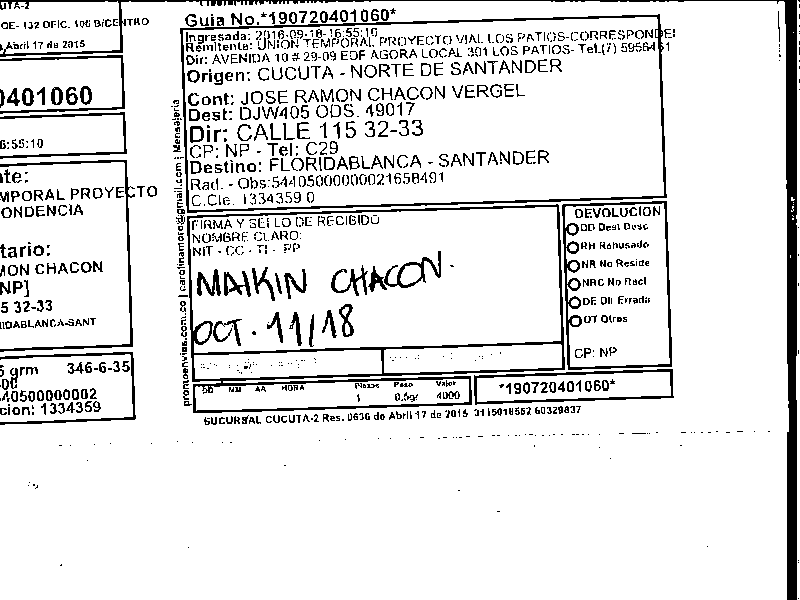 UTA-2
OE- 132 OFIC. 106 B/CENTRO
Abril 17 de 2015
0401060
6:55:10
te:
MPORAL PROYECTO
ONDENCIA
tario:
MON CHACON
NP]
5 32-33
IDABLANCA-SANT
5 grm 346-6-35
00
40500000002
cion: 1334359
Guia No.*190720401060*
Ingresada: 2018-09-18-16:55:10
Remitente: UNION TEMPORAL PROYECTO VIAL LOS PATIOS-CORRESPONDE
Dir: AVENIDA 10 # 29-09 EDF AGORA LOCAL 301 LOS PATIOS- Tel.(7) 5956451
Origen: CUCUTA - NORTE DE SANTANDER
Cont: JOSE RAMON CHACON VERGEL
Dest: DJW405 ODS. 49017
Dir: CALLE 115 32-33
CP: NP - Tel: C29
Destino: FLORIDABLANCA - SANTANDER
Rad. - Obs:54405000000021658491
C.Cle. 1334359 0
FIRMA Y SELLO DE RECIBIDO
NOMBRE CLARO:
NIT - CC - TI - PP
MAIKIN CHACON.
OCT. 11/18
DEVOLUCION
DD Dest Desc
RH Rehusado
NR No Reside
NRC No Recl
DE Dir Errada
OT Otros
CP: NP
DD MM AA HORA
Piezas Peso Valor
1 0,5gr 4000
*190720401060*
SUCURSAL CUCUTA-2 Res. 0636 de Abril 17 de 2015 3115018552 60329837